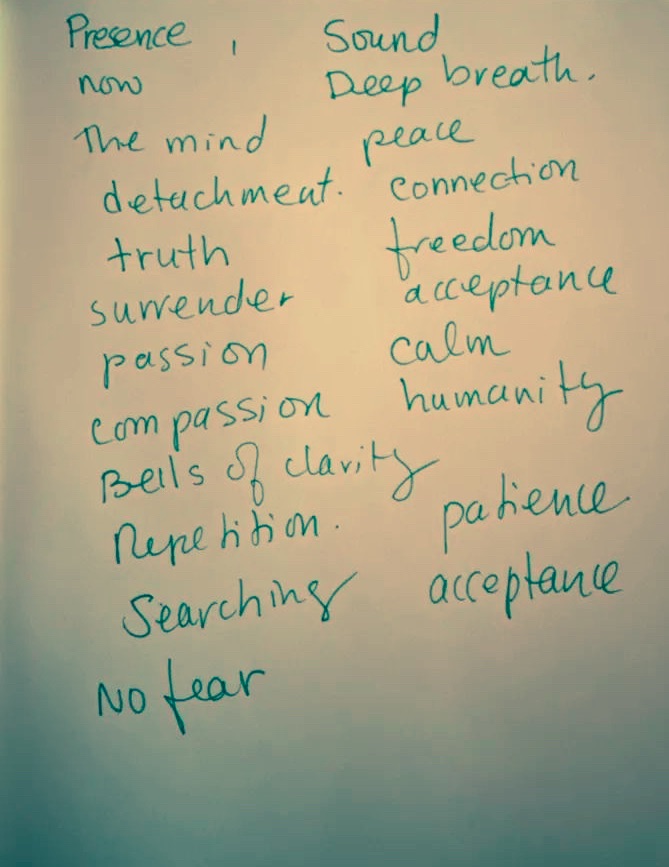 Presence , Sound
now Deep breath.
The mind peace
detachment. connection
truth freedom
surrender acceptance
passion calm
compassion humanity
Bells of clarity
Repetition. patience.
Searching acceptance
No fear